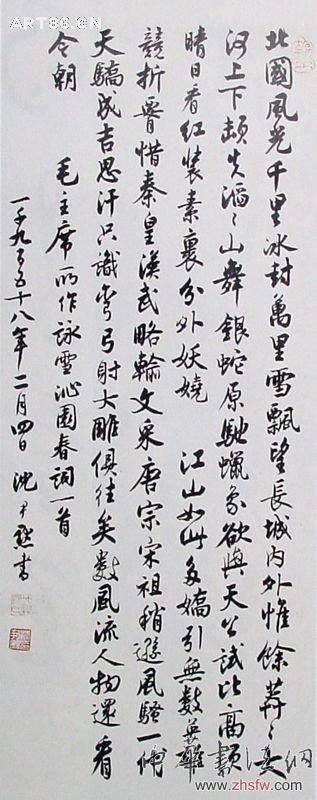 ART86.CN
北國風光千里冰封萬里雪飄望長城內外惟餘莽〻大
河上下頓失滔〻山舞銀蛇原馳蠟象欲與天公試比高須
晴日看紅裝素裹分外妖嬈 江山如此多嬌引無數英雄
競折腰惜秦皇漢武略輸文采唐宗宋祖稍遜風騷一代
天驕成吉思汗只識彎弓射大雕俱往矣數風流人物還看
今朝 毛主席所作詠雪沁園春詞一首
一千九百五十八年二月四日 沈尹默書
www.zhsfw.com